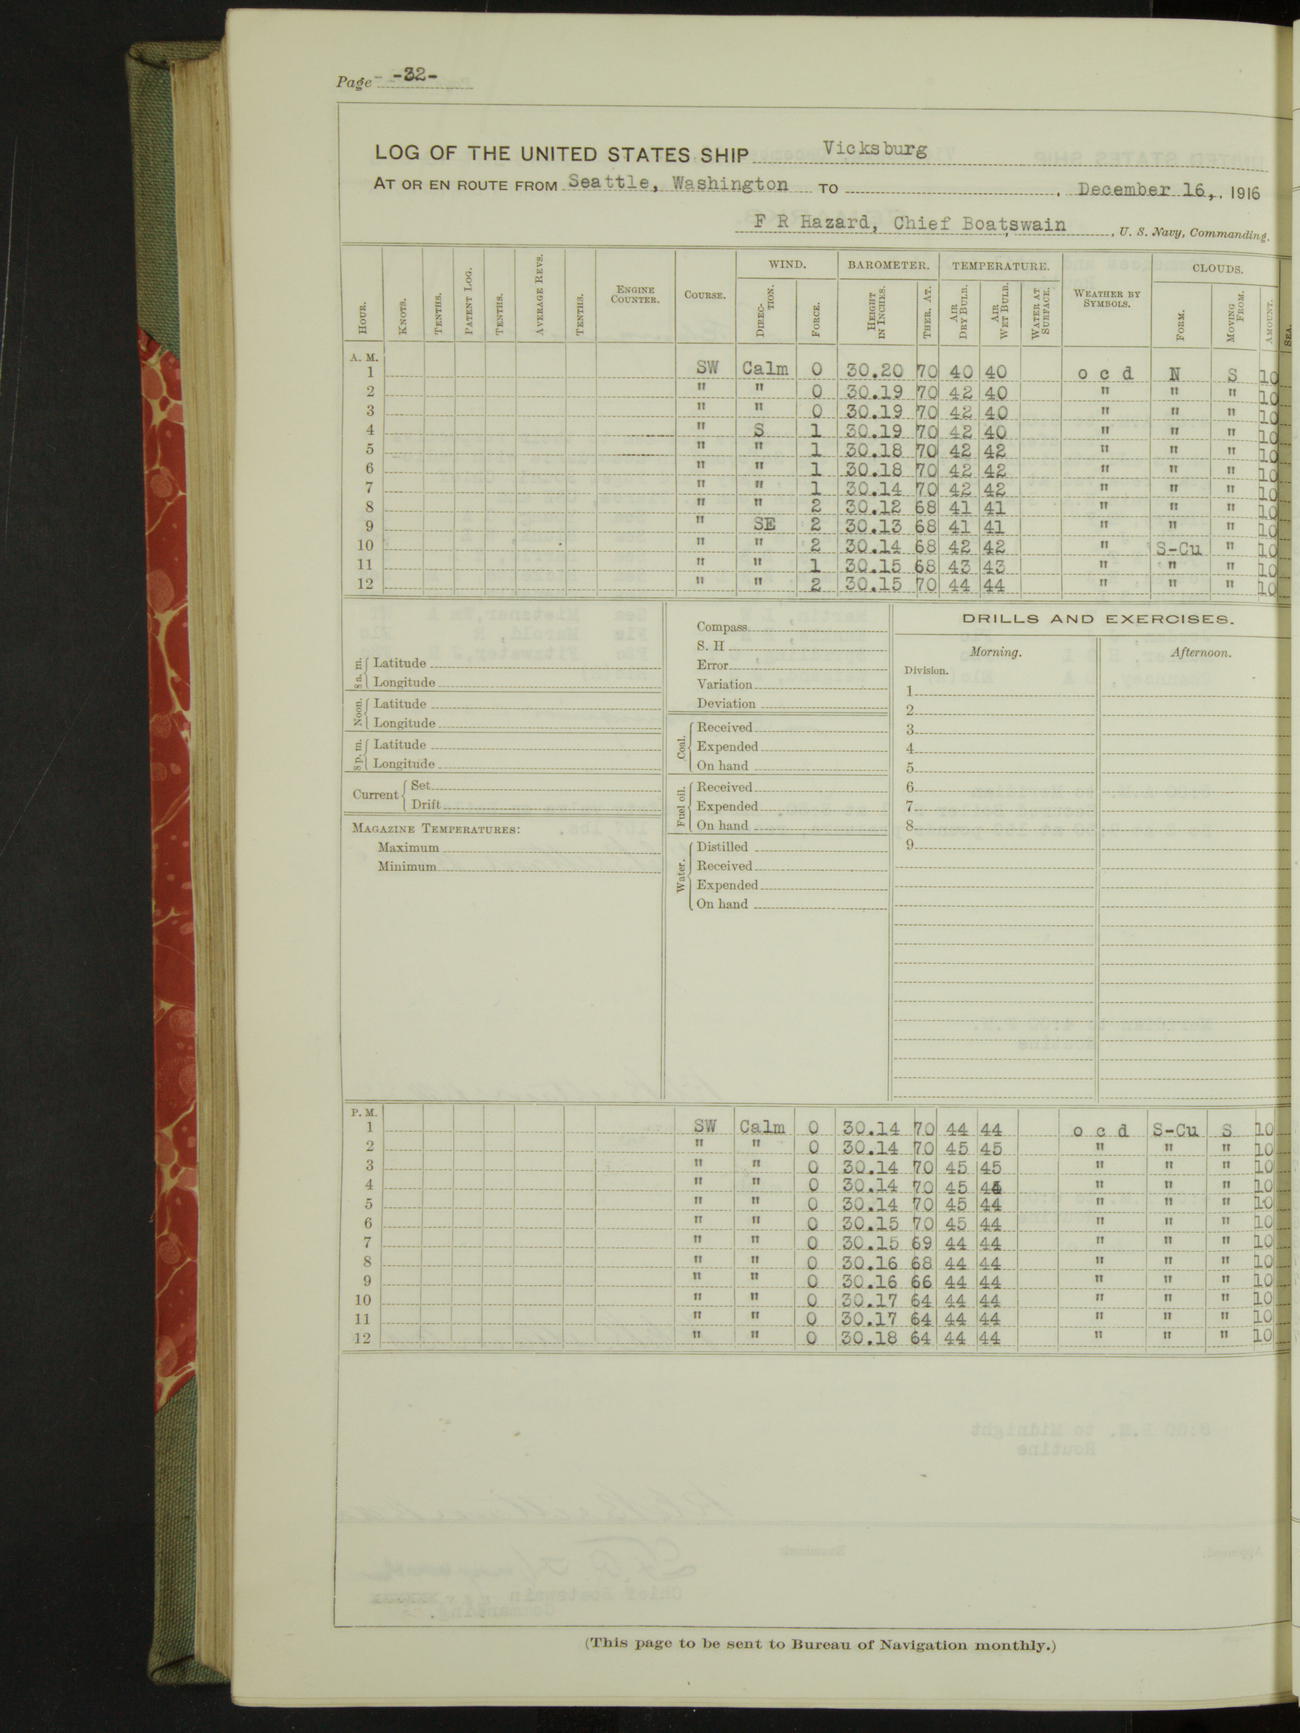 Page -32-
LOG OF THE UNITED STATES SHIP Vicksburg
AT OR EN ROUTE FROM Seattle, Washington TO , December 16, 1916
F R Hazard, Chief Boatswain, U. S. Navy, Commanding.
HOUR. KNOTS. TENTHS. PATENT LOG. TENTHS. AVERAGE REVS. TENTHS. ENGINE COUNTER. COURSE. WIND. DIRECTION. FORCE. BAROMETER. HEIGHT IN INCHES. THER. AT. TEMPERATURE. AIR DRY BULB. AIR WET BULB. WATER AT SURFACE. WEATHER BY SYMBOLS. CLOUDS. FORM. MOVING FROM. AMOUNT. SEA.
A. M.
1 SW Calm 0 30.20 70 40 40 o c d N S 10
2 " " 0 30.19 70 42 40 " " " 10
3 " " 0 30.19 70 42 40 " " " 10
4 " S 1 30.19 70 42 40 " " " 10
5 " " 1 30.18 70 42 42 " " " 10
6 " " 1 30.18 70 42 42 " " " 10
7 " " 1 30.14 70 42 42 " " " 10
8 " " 2 30.12 68 41 41 " " " 10
9 " SE 2 30.13 68 41 41 " " " 10
10 " " 2 30.14 68 42 42 " S-Cu " 10
11 " " 1 30.15 68 43 43 " " " 10
12 " " 2 30.15 70 44 44 " " " 10
8 a. m. Latitude
Longitude
Noon. Latitude
Longitude
8 p. m. Latitude
Longitude
Current Set
Drift
MAGAZINE TEMPERATURES:
Maximum
Minimum
Compass
S. H
Error
Variation
Deviation
Coal. Received
Expended
On hand
Fuel oil. Received
Expended
On hand
Water. Distilled
Received
Expended
On hand
DRILLS AND EXERCISES.
Morning. Afternoon.
Division.
1
2
3
4
5
6
7
8
9
P. M.
1 SW Calm 0 30.14 70 44 44 o c d S-Cu S 10
2 " " 0 30.14 70 45 45 " " " 10
3 " " 0 30.14 70 45 45 " " " 10
4 " " 0 30.14 70 45 " " " 10
5 " " 0 30.14 70 45 44 " " " 10
6 " " 0 30.15 70 45 44 " " " 10
7 " " 0 30.15 69 44 44 " " " 10
8 " " 0 30.16 68 44 44 " " " 10
9 " " 0 30.16 66 44 44 " " " 10
10 " " 0 30.17 64 44 44 " " " 10
11 " " 0 30.17 64 44 44 " " " 10
12 " " 0 30.18 64 44 44 " " " 10
(This page to be sent to Bureau of Navigation monthly.)